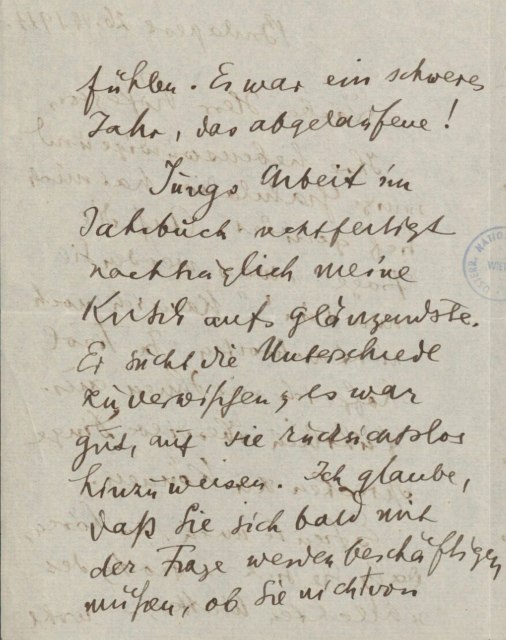 fühlen. Es war ein schweres
Jahr, das abgelaufene!
Jungs Arbeit im
Jahrbuch rechtfertigt
nachträglich meine
Kritik aufs glänzendste.
Er sucht die Unterschiede
zu verwischen; es war
gut, auf sie rücksichtslos
hinzuweisen. Ich glaube,
daß Sie sich bald mit
der Frage werden beschäftigen
müßen, ob Sie nicht von